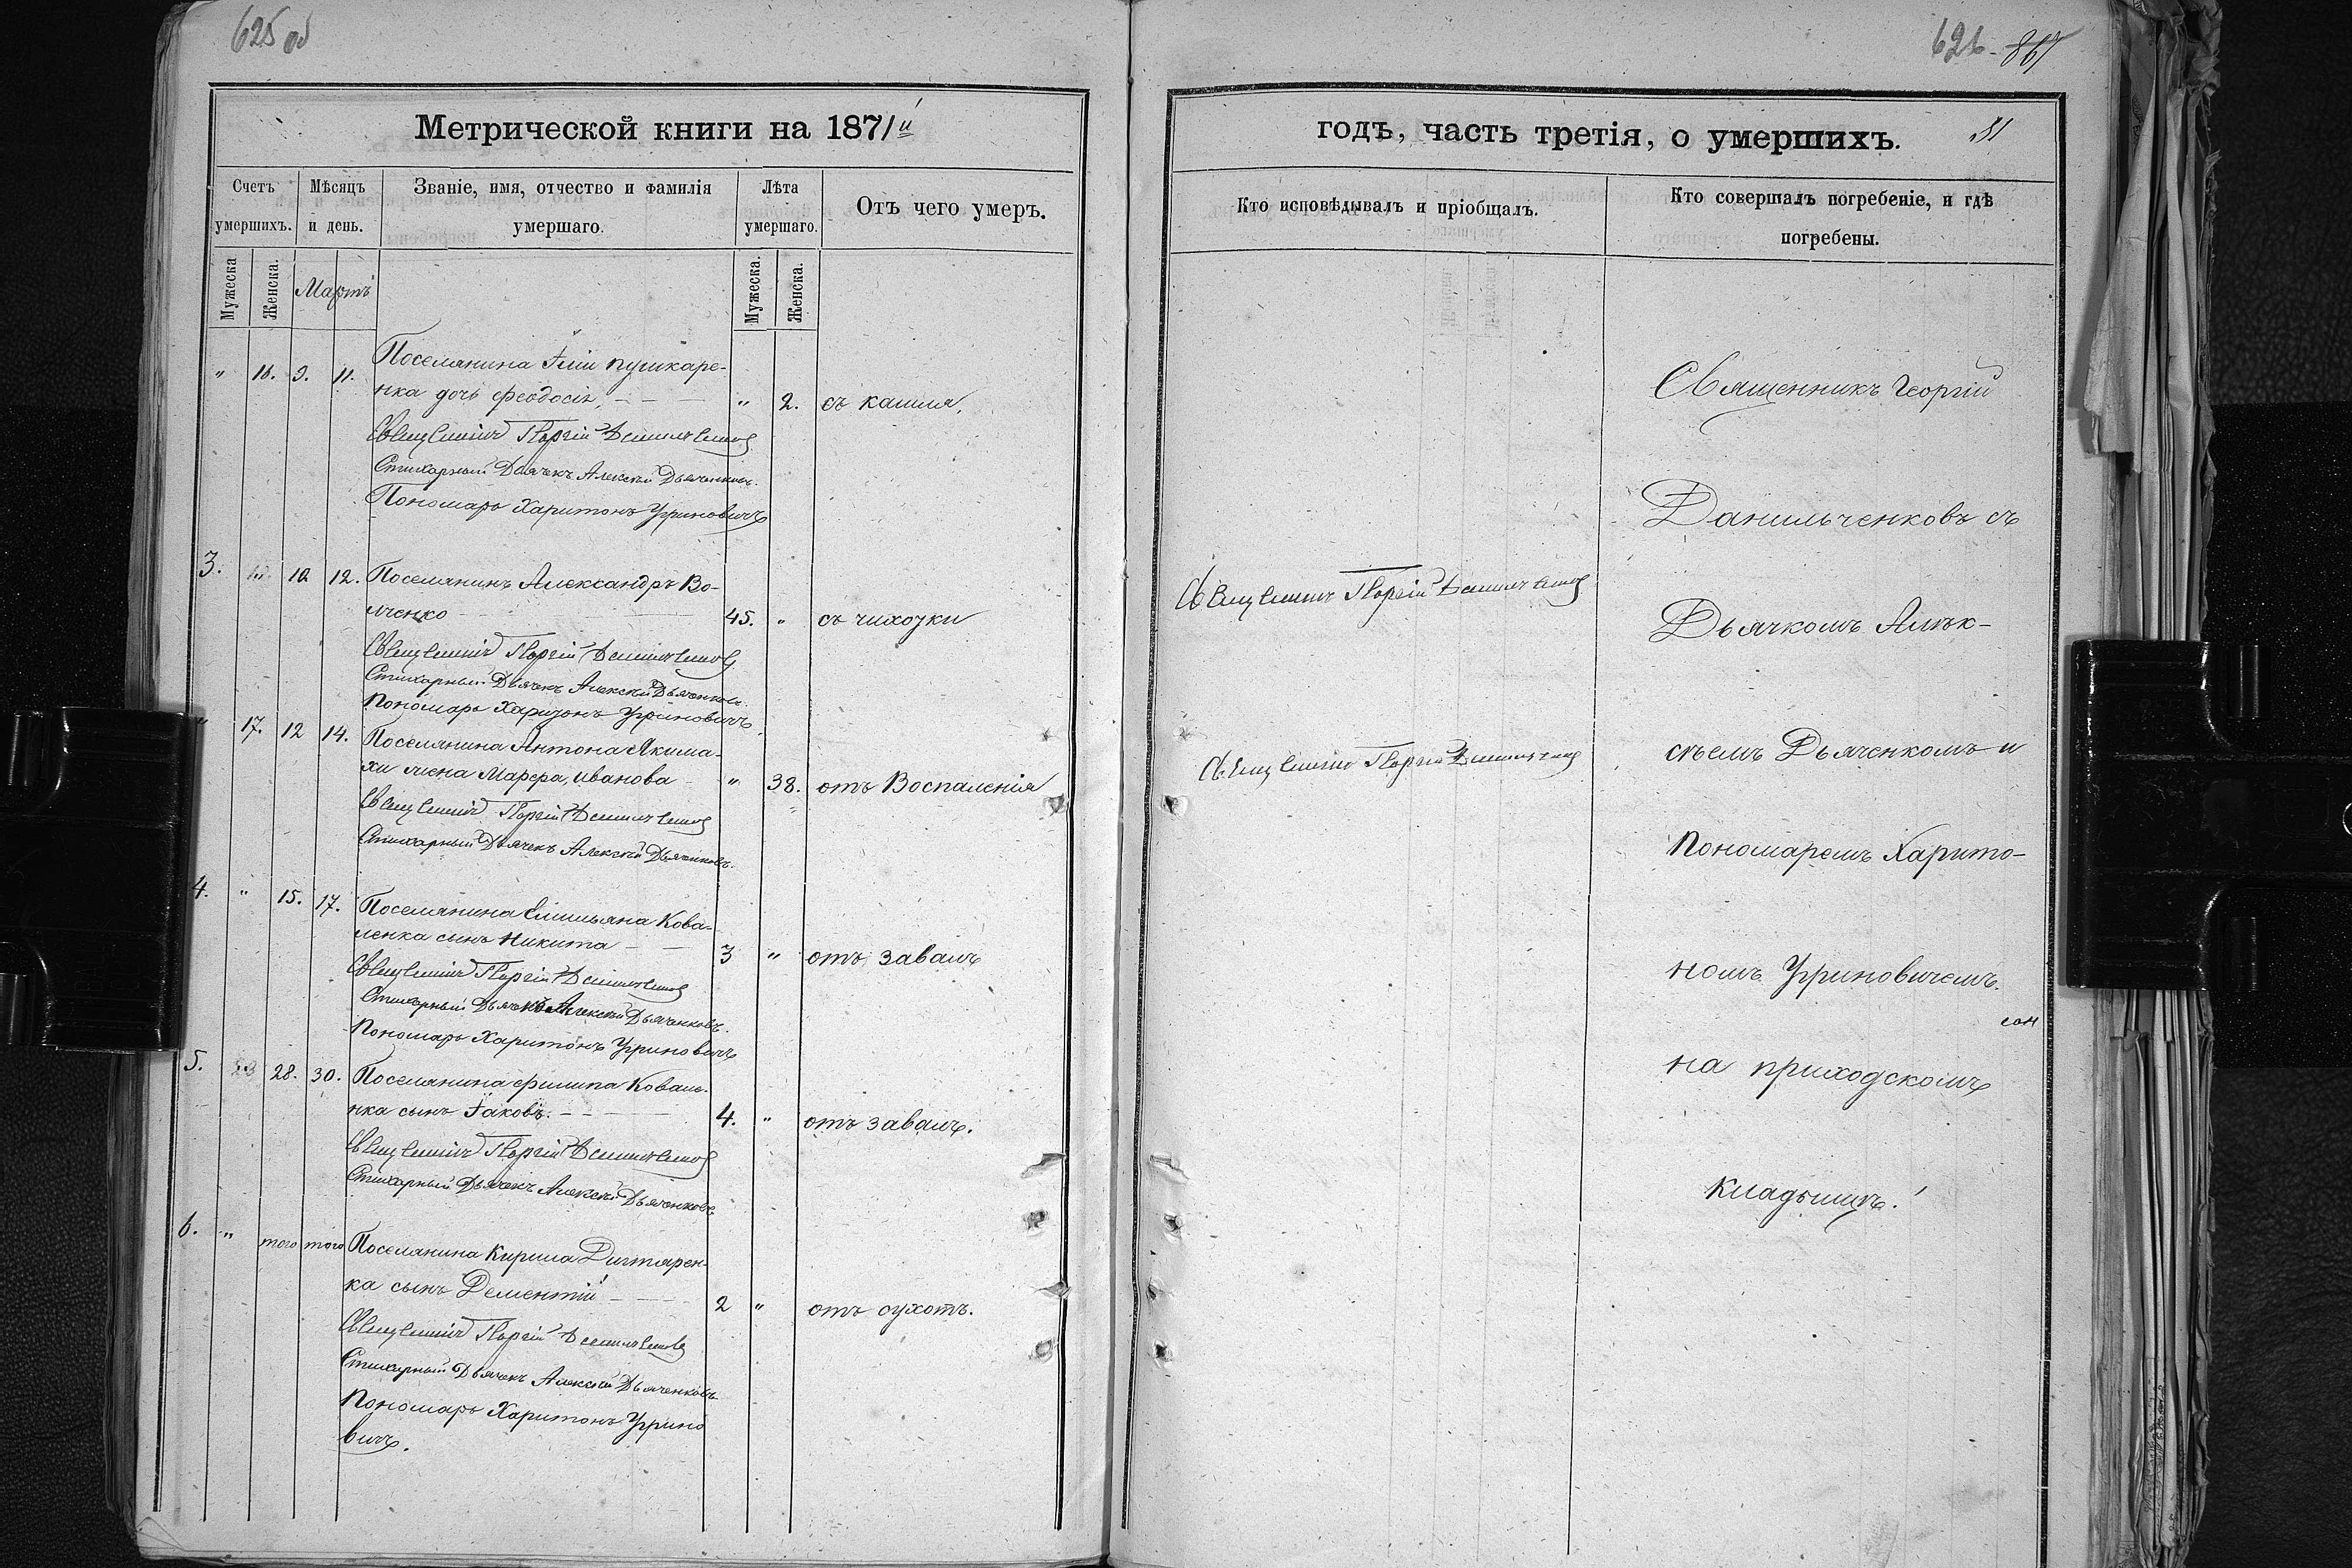 625 об
Метрической книги на 1871й
Счетъ умершихъ.
Мѣсяцъ и день.
Званіе, имя, отчество и фамилія умершаго.
Лѣта умершаго.
Отъ чего умеръ.
Мужеска
Женска.
Мартъ
Мужеска.
Женска.
" 16. 9. 11. Поселянина Іліи Пушкаре-
нка дочь Феодосія, " 2. съ кашля.
Священникъ Георгій Данильченковъ
Стихарный Дьячекъ Алексѣй Дьяченковъ.
Пономарь Харитонъ Угриновичъ
3. 10 12. Поселянинъ Александръ Во-
лченко 45. " съ чихотки
Священникъ Георгій Данильченковъ
Стихарный Дьячекъ Алексѣй Дьяченковъ.
Пономарь Харитонъ Угриновичъ
" 17. 12 14. Поселянина Антона Якима-
хи жена Марфа, Иванова " 38. отъ Воспаленія
Священникъ Георгій Данильченковъ
Стихарный Дьячекъ Алексѣй Дьяченковъ.
4. " 15. 17. Поселянина Емильяна Кова-
ленка сынъ Никита 3 " отъ завалъ
Священникъ Георгій Данильченковъ
Стихарный Дьячекъ Алексѣй Дьяченковъ.
Пономарь Харитонъ Угриновичъ
5. 28. 30. Поселянина Филипа Ковале-
нка сынъ Іаковъ. 4. " отъ завалъ.
Священникъ Георгій Данильченковъ
Стихарный Дьячекъ Алексѣй Дьяченковъ
6. " того того Поселянина Кирила Дигтярен-
ка сынъ Дементій 2 " отъ сухотъ.
Священникъ Георгій Данильченковъ
Стихарный Дьячекъ Алексѣй Дьяченковъ
Пономарь Харитонъ Угрино
вичъ.
626 861
годъ, часть третія, о умершихъ. 81
Кто исповѣдывалъ и пріобщалъ.
Кто совершалъ погребеніе, и гдѣ погребены.
Священникъ Георгій Данильченковъ
Священникъ Георгій Данильченковъ
Священникъ Георгій
Данильченковъ съ
Дьячкомъ Алек-
сѣемъ Дьяченкомъ и
Пономаремъ Харито-
номъ Угриновичемъ.
на приходскомъ
кладбищѣ.